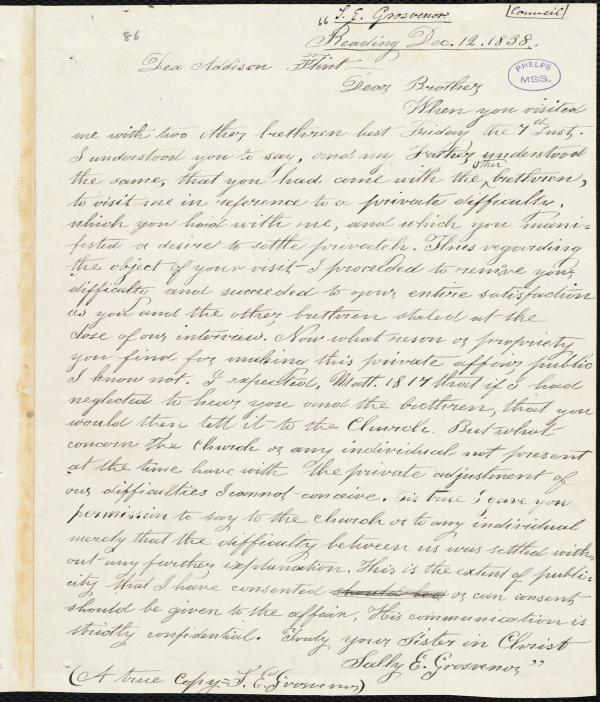 "S. E. Grosvenor
Council
86
Reading Dec. 12. 1838.
PHELPS
MSS.
Dea Addison Flint
Dear Brother
When you visited
me with two other brethren last Friday the 7th Inst.
I understood you to say, and my Father understood
the same, that you had come with the other brethren,
to visit me in reference to a private difficulty,
which you had with me, and which you mani-
fested a desire to settle privately. Thus regarding
the object of your visit I proceeded to remove your
difficulty and succeeded to your entire satisfaction
as you and the other brethren stated at the
close of our interview. Now what reson or propriety
you find for making this private affair public
I know not. I expected, Matt. 18 17 that if I had
neglected to hear you and the brethren, that you
would then tell it to the Church. But what
concern the Church or any individual not present
at the time have with the private adjustment of
our difficulties I cannot conceive. Tis true I gave you
permission to say to the church or to any individual
merely that the difficulty between us was settled with-
out any further explanation. This is the extent of publi-
city that I have consented should bee or can consent
should be given to the affair. This communication is
strictly confidential. Truly your Sister in Christ
Sally E. Grosvenor"
(A true Copy = S. E. Grosvenor)